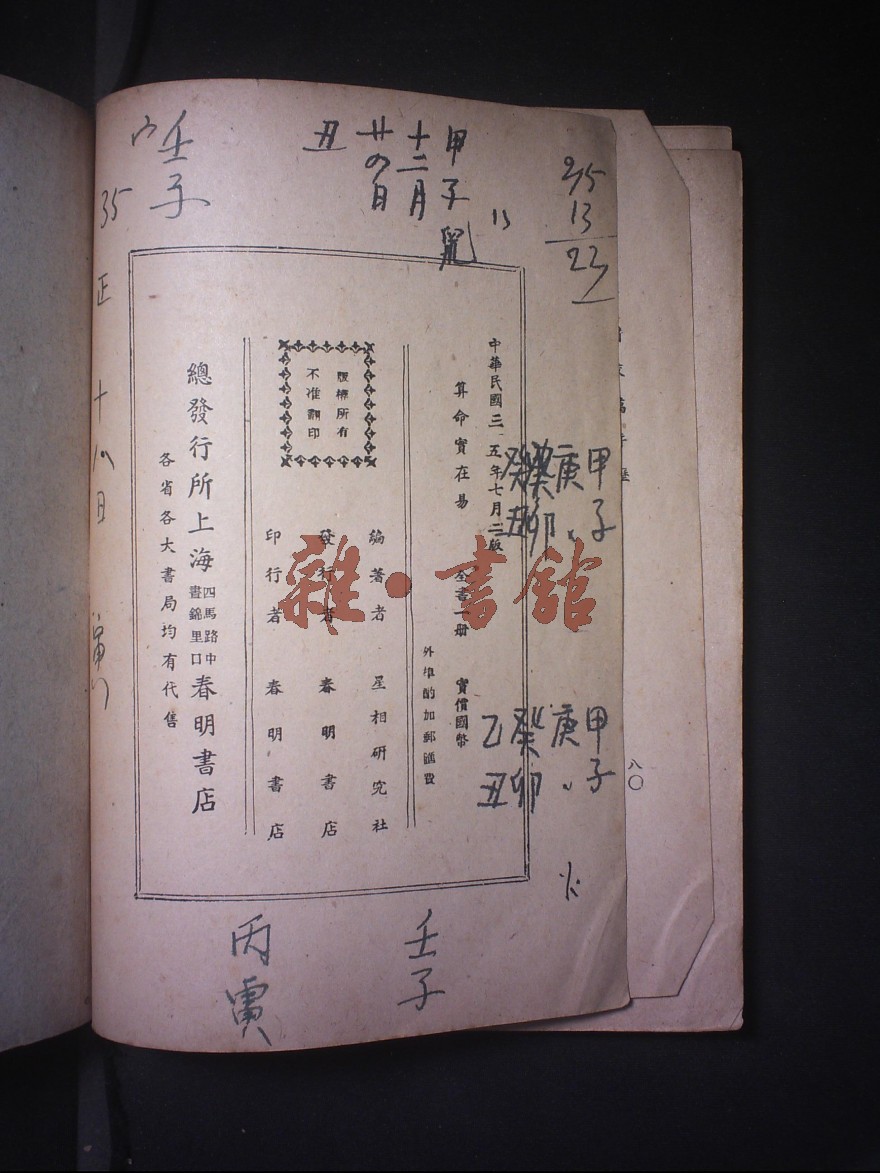 甲子鼠
十二月
廿四日
丑
壬子
35
正
十八日
13
甲子
庚
癸卯
癸丑
中華民國三五年七月二版
算命實在易
全書一册
實價國幣
外埠酌加郵匯費
版權所有
不准翻印
編著者 星相研究社
發行者 春明書店
印行者 春明書店
總發行所上海四馬路中畫錦里口春明書店
各省各大書局均有代售
甲子
庚
癸卯
乙丑
壬子
丙寅
雜·書館
八〇